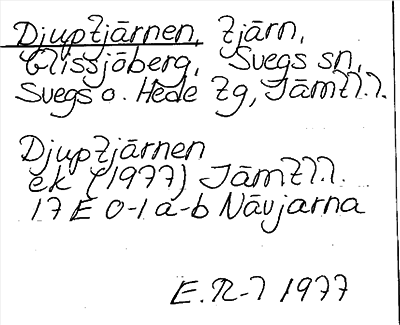 Djuptjärnen, tjärn,
Glissjöberg, Svegs sn,
Svegs o. Hede tg, Jämtl.l.
Djuptjärnen
ek (1977) Jämtl.l.
17 E 0-1 a-b Nävjarna
1977